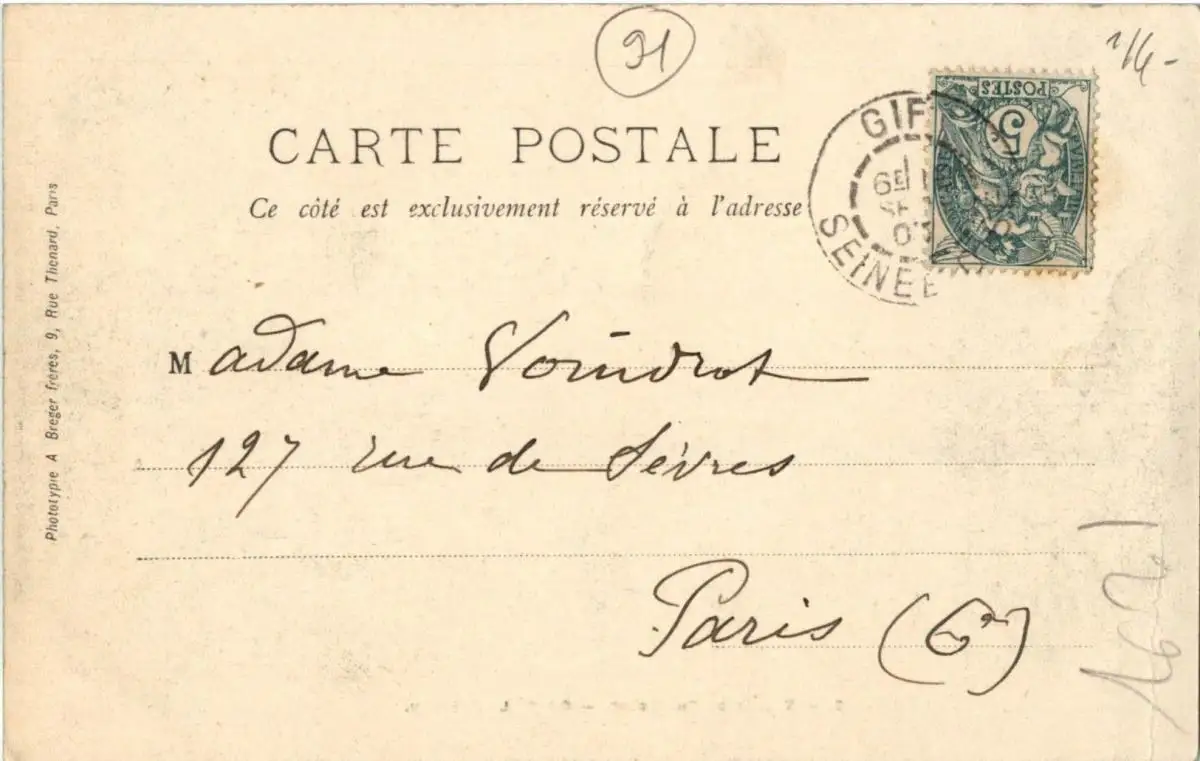 91
1/4-
CARTE POSTALE
Ce côté est exclusivement réservé à l'adresse
POSTES
5
GIF
6E
03
SEINE
Madame Voindrot
127 rue de Sèvres
Paris (6e)
Phototypie A Breger frères, 9, Rue Thenard, Paris